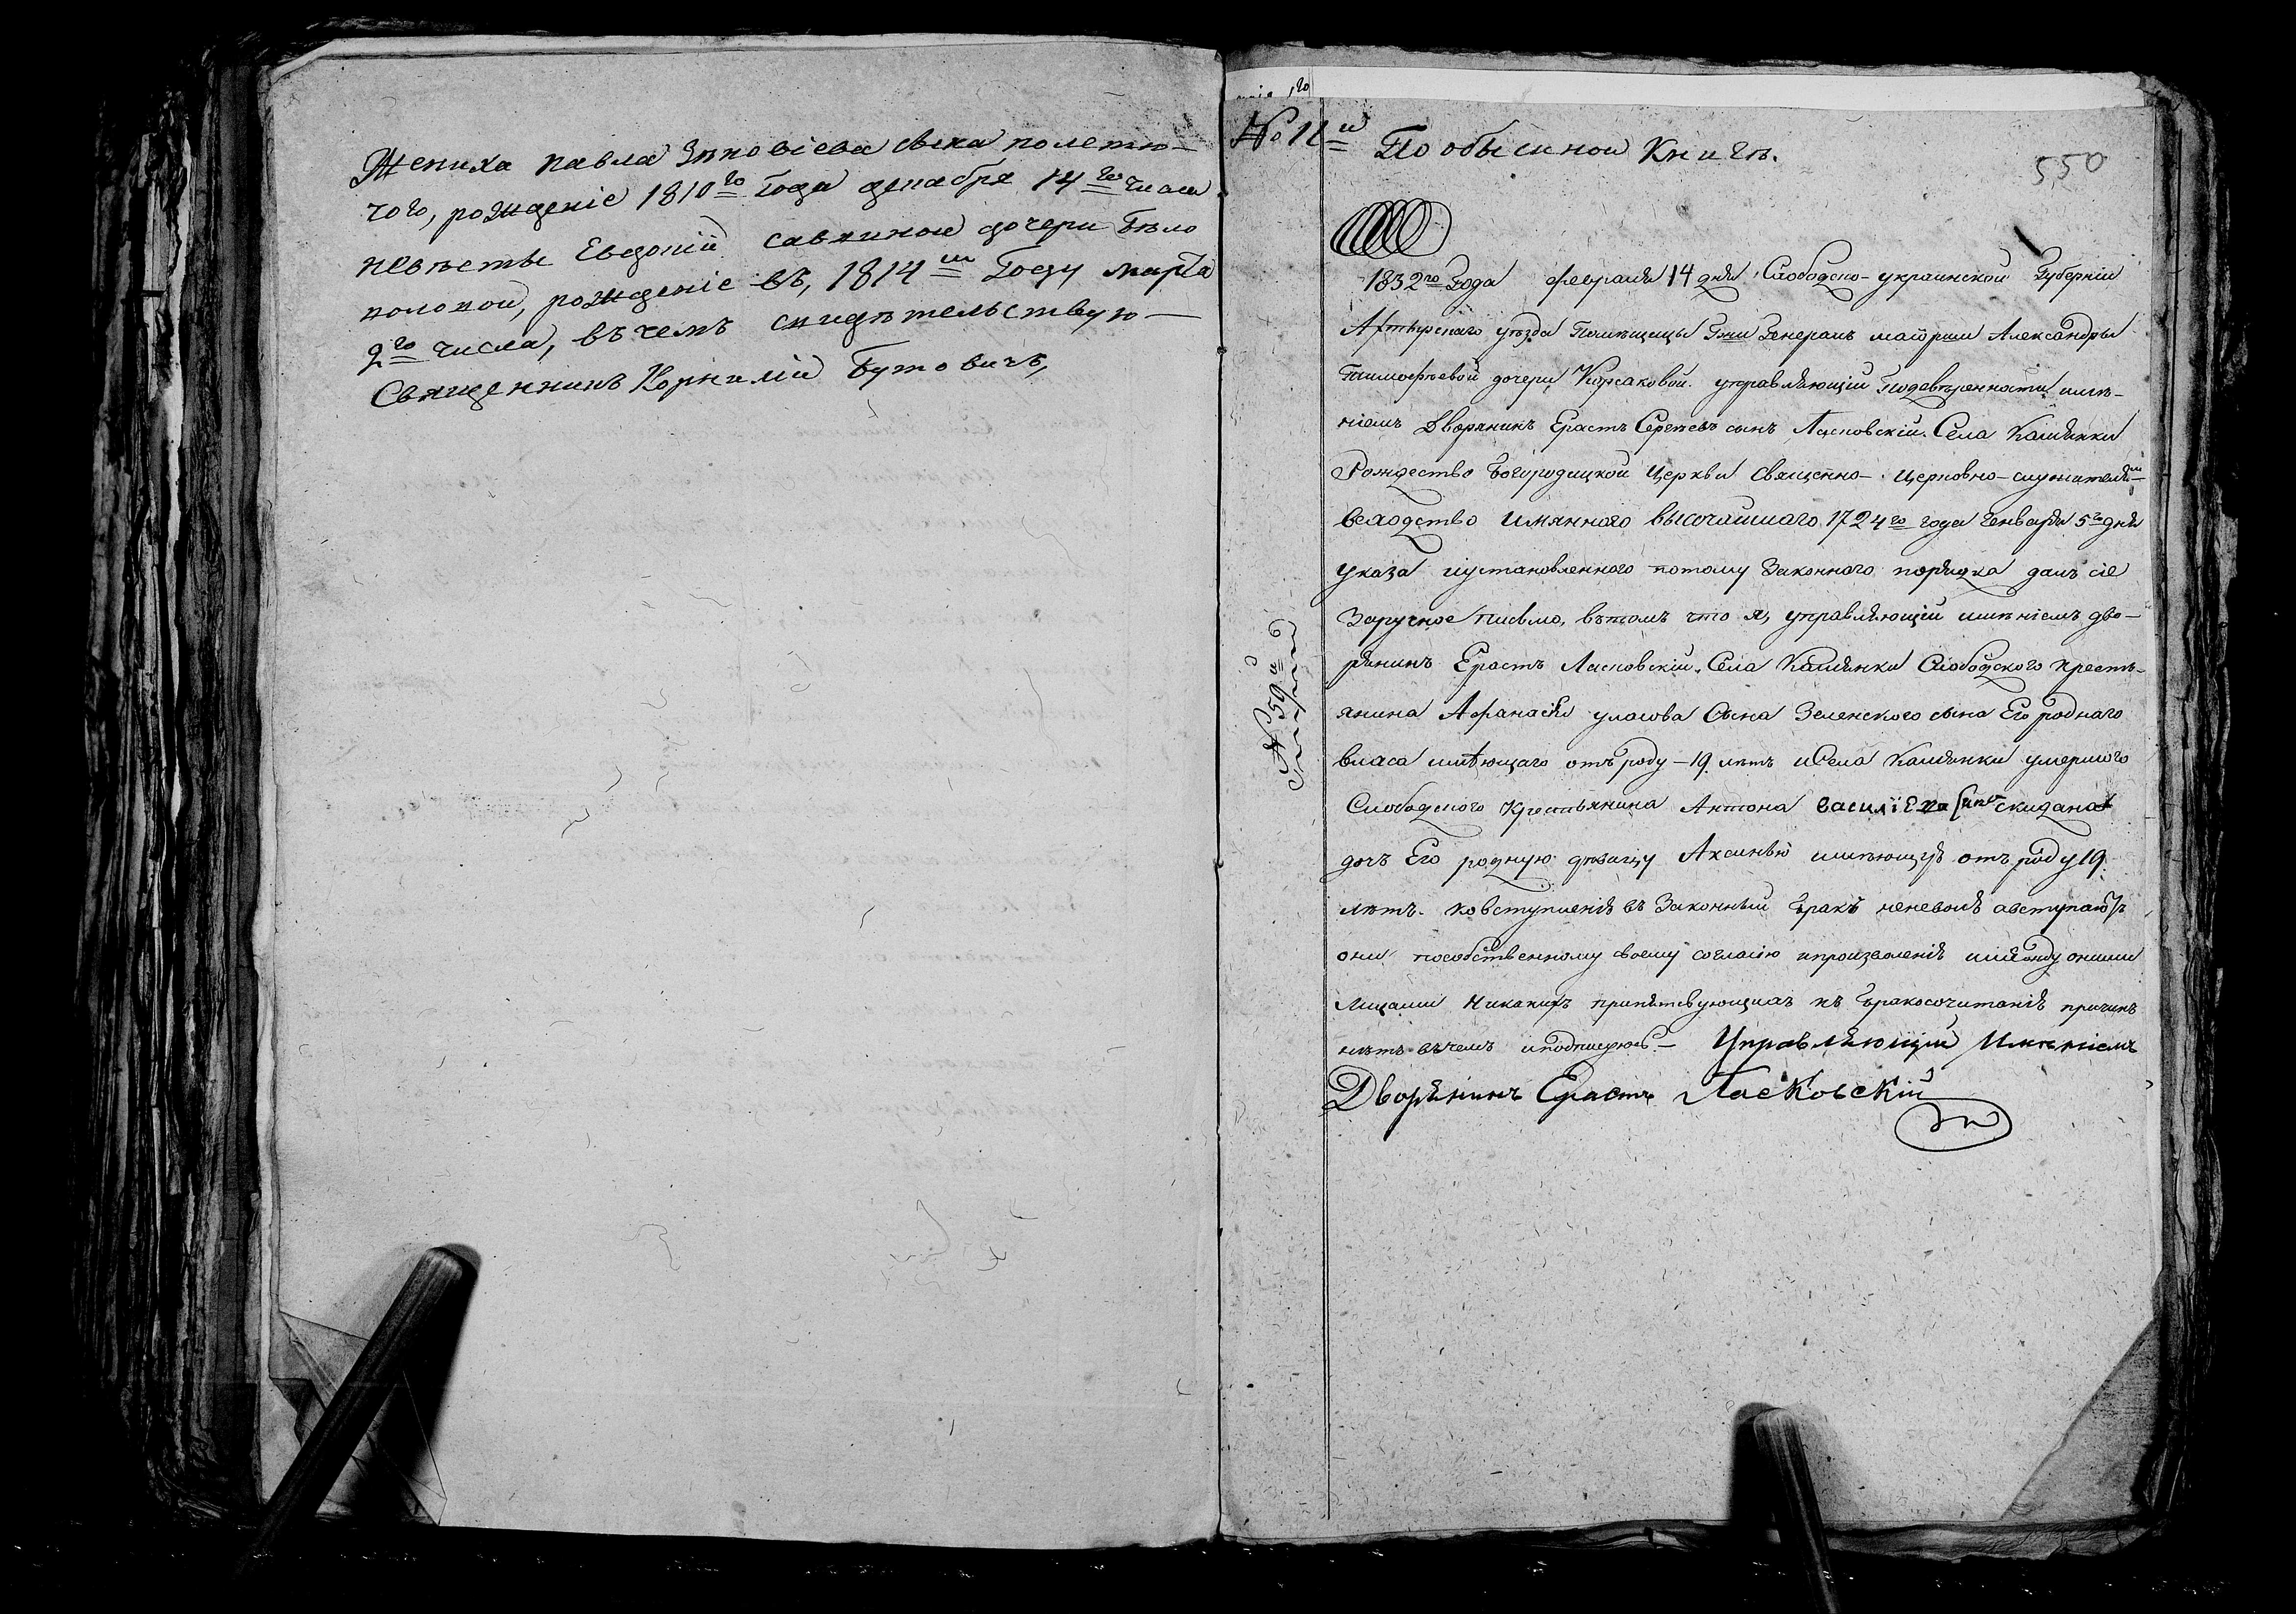 Жениха павла Зиновіева сына полетю-
чого, рожденіе 1810го Года декабря 14го числа
невѣсты Евдокіи савяиной дочери Бѣло
половой, рожденіе въ, 1814м Году марта
2го числа, въ чемъ свидѣтельствую —
Священникъ Корнилій Бутовичъ,
№ 11й По обыскной Книгѣ.
550
1832го Года февраля 14 дня Слободско-украинской Губерніи
Ахтырского уѣзда Помѣщицы Гжи Генералъ маіорши Александры
Тимофѣевой дочери Корсаковой. управляющій Подовѣренности имѣ-
ніемъ Дворянинъ Ерастъ Сергѣевъ сынъ Ласковскій. Села Камянки
Рождество Богородицкой Церкви Священно- Церковно-служителямъ-
всходство имянного высочайшаго 1724го года Генваря 5го дня
указа иустановленного потому Законного порядка далъ сіе
Заручное письмо, вътомъ что я, управляющій имѣніемъ дво-
рянинъ Ерастъ Ласковскій. Села Камянки Слободского кресть-
янина Афанасія уласова Сына Зеленского сына Его роднаго
власа имѣющаго отъ роду - 19 лѣтъ и Села Камянки умершого
Слободского Крестьянина Антона василіева сына скидана
дочъ Его родную дѣвицу Аксинью имѣющую отъ роду 19
лѣтъ. ковступленію въ Законный бракъ неневолю авступаютъ
они пособственному своему согласію ипроизволенію имежду оними
Лицами Никакихъ припятствующихъ къ бракосочитанію причинъ
нѣтъ въчемъ иподписуюсь.- Управляющій Имѣніемъ
Дворянинъ Ерастъ Ласковскій
№ 59й